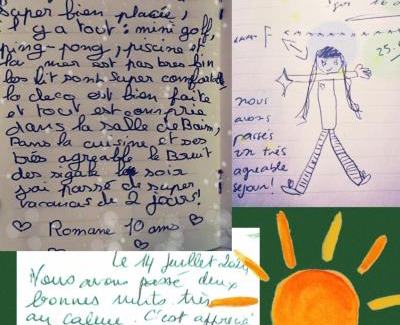 super bien placée,
il y a tout : mini golf,
ping-pong, piscine et
la mer est pas très loin
les lit sont super comfortable
la déco est bien faite
et tout est comprie
dans la salle de Bain,
Dans la cuisine, et ses
très agréable le Bruit
des sigale le soir
j'ai passé de super
vacances de 2 jours!
Romane 10 ans
nous
avons
passés
un très
agreable
séjour!
Le 14 Juillet
Nous avons passé deux
bonnes nuits très
au calme. C'est